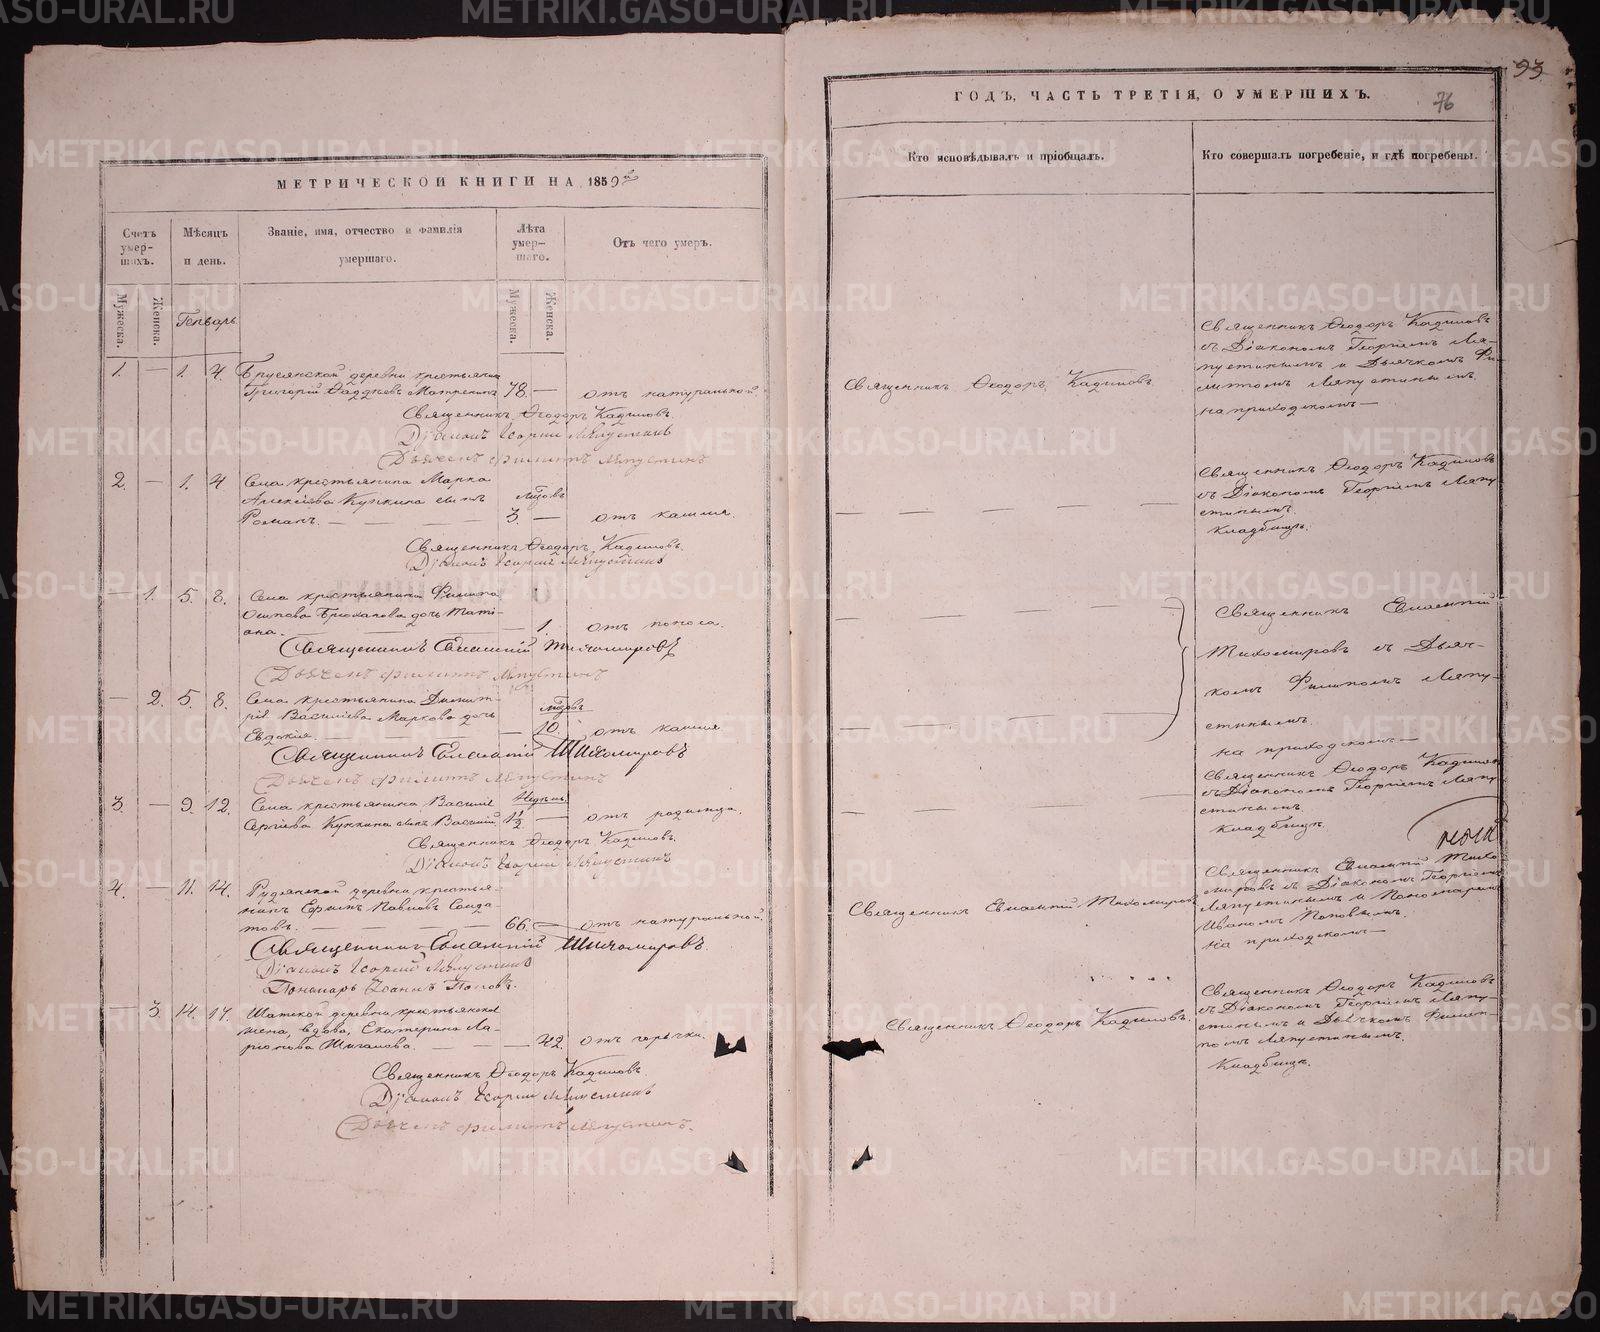 МЕТРИЧЕСКОЙ КНИГИ НА 1859й
Счетъ умер-шихъ.
Мѣсяцъ и день.
Званіе, имя, отчество и фамилія умершаго.
Лѣта умер-шаго.
Отъ чего умеръ.
Мужеска.
Женска.
Генварь.
Мужеска.
Женска.
1. — 1. 4. Брусянской деревни крестьянинъ
Григорій Ѳаддѣевъ 78. — отъ натуральной.
Священникъ Ѳеодоръ Кадиловъ.
Діаконъ Георгій Ляпустинъ
Дьячекъ Филиппъ Ляпустинъ
2. — 1. 4 Села крестьянина Марка
Алексѣева Кункина сынъ лѣтовъ
Романъ. — — — 3. — отъ кашля.
Священникъ Ѳеодоръ Кадиловъ.
Діаконъ Георгій Ляпустинъ
— 1. 5. 8. Села крестьянина Филиппа
Осипова дочь Тати-
ана. — 1. отъ поноса.
Священникъ Евлампій Тихомировъ
Дьячекъ Филиппъ Ляпустинъ
— 2. 5. 8. Села крестьянина Димит-
рія Василіева Маркова дочь лѣтовъ
Евдокія. — — 10. отъ кашля
Священникъ Евлампій Тихомировъ
Дьячекъ Филиппъ Ляпустинъ
3. — 9. 12. Села крестьянина Василія Недѣль
Сергіева Кункина сынъ Василій 1½ — отъ родимца.
Священникъ Ѳеодоръ Кадиловъ.
Діаконъ Георгій Ляпустинъ
4. — 11. 14. Рудянской деревни крестья-
нинъ Павловъ Солда-
товъ. — — 66. — отъ натуральной.
Священникъ Евлампій Тихомировъ.
Діаконъ Георгій Ляпустинъ
Пономарь Іоаннъ Поповъ.
— 3. 14. 17. деревни крестьянская
жена, вдова, Екатерина Ла-
ріонова Шигалова. — — 42. отъ горячки.
Священникъ Ѳеодоръ Кадиловъ.
Діаконъ Георгій Ляпустинъ
Дьячекъ Филиппъ Ляпустинъ.
93
76
ГОДЪ, ЧАСТЬ ТРЕТІЯ, О УМЕРШИХЪ.
Кто исповѣдывалъ и пріобщалъ.
Кто совершалъ погребеніе, и гдѣ погребены.
Священникъ Ѳеодоръ Кадиловъ
Священникъ Ѳеодоръ Кадиловъ
съ Діакономъ Георгіемъ Ля-
пустинымъ и Дьячкомъ Фи-
липпомъ Ляпустинымъ.
на приходскомъ —
Священникъ Ѳеодоръ Кадиловъ
съ Діакономъ Георгіемъ Ляпу-
стинымъ.
Кладбищѣ.
Священникъ Евлампій
Тихомировъ съ Дьяч-
комъ Филиппомъ Ляпу-
стинымъ.
на приходскомъ —
Священникъ Ѳеодоръ Кадиловъ
съ Діакономъ Георгіемъ Ляпу-
стинымъ.
Кладбищѣ.
Священникъ Евлампій Тихомировъ
Священникъ Евлампій Тихо-
мировъ съ Діакономъ Георгіемъ
Ляпустинымъ и Пономаремъ
Иваномъ Поповымъ.
на приходскомъ —
Священникъ Ѳеодоръ Кадиловъ.
Священникъ Ѳеодоръ Кадиловъ
съ Діакономъ Георгіемъ Ляпу-
стинымъ и Дьячкомъ Филип-
помъ Ляпустинымъ.
Кладбищѣ.
METRIKI.GASO-URAL.RU